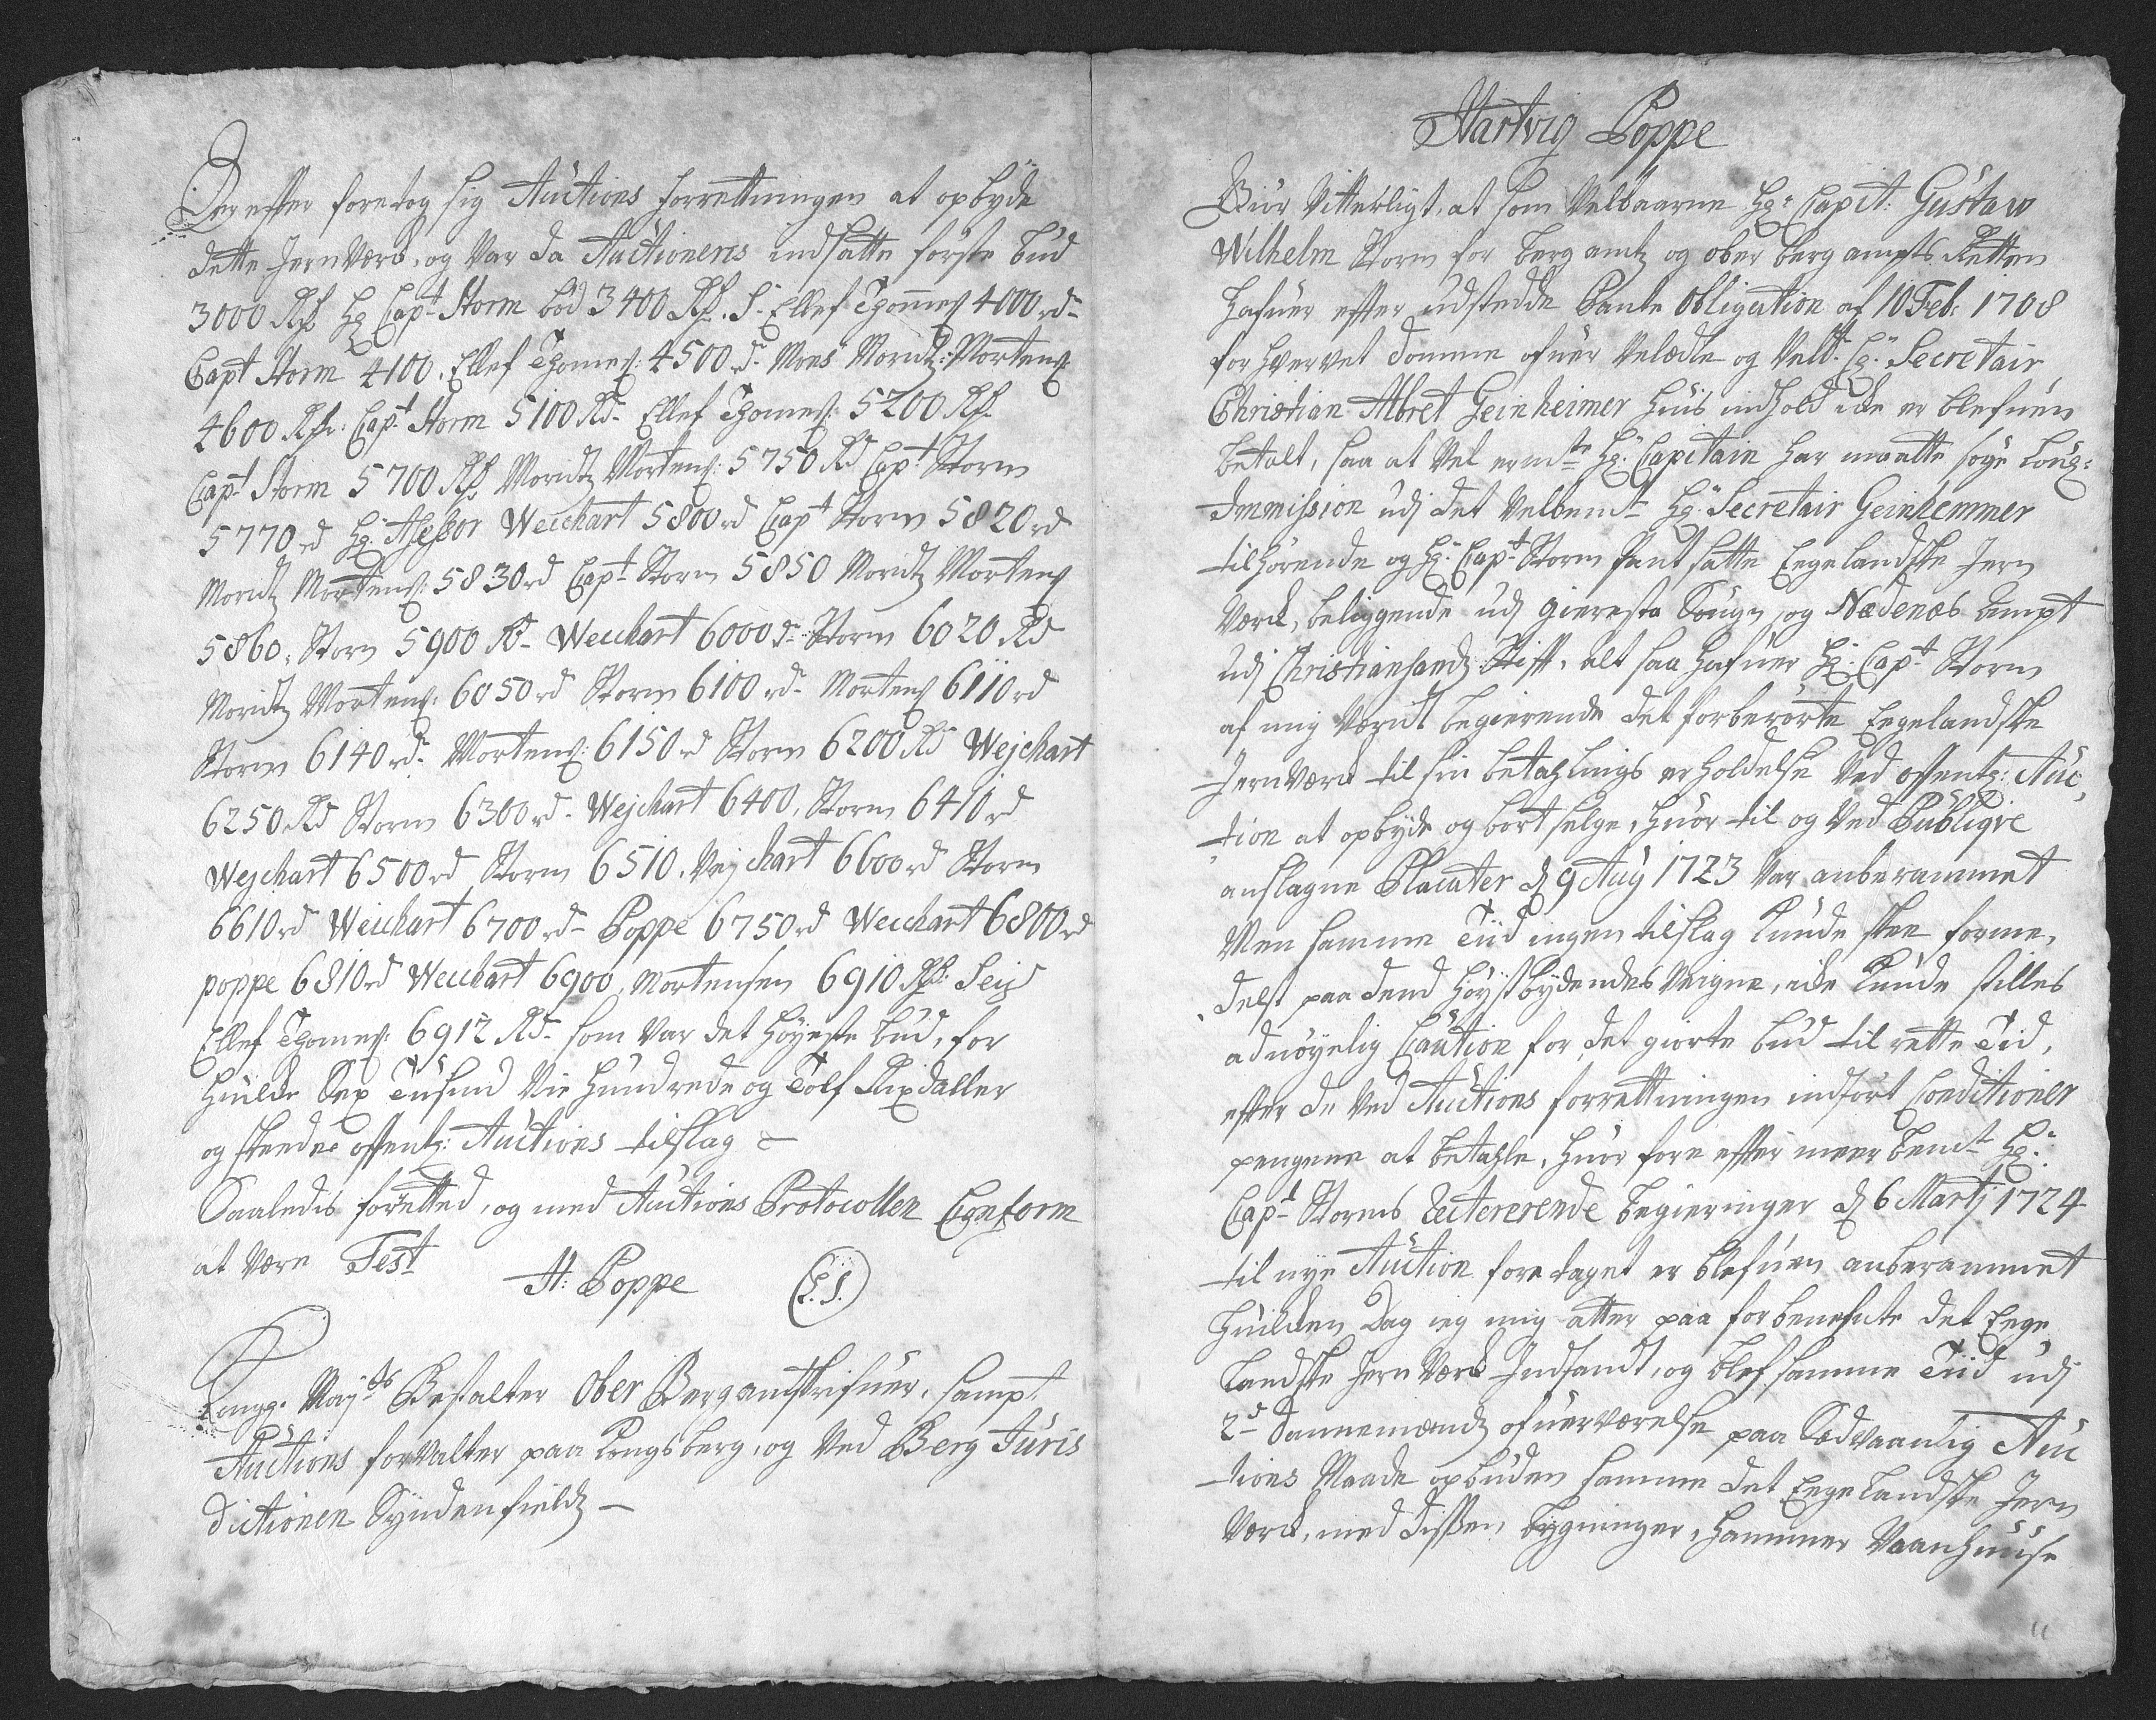 Der effter foretog sig Auctions forrettningen at opbyde
dette Jernværck, og var da Auctionens indsatte første bud
3000 Rd. Hr. Capt Storm bød 3400 Rd. S. Ellef Thomes: 4000 rd
Capt Storm 4100. Ellef Thomes: 4500 rd. Mons Moridtz Mortens:
4600 Rd. Capt Storm 5100 Rd. Ellef Thomes: 5200 Rd.
Capt Storm 5700 Rd. Moridtz Mortens: 5750 Rd Capt Storm
5770 rd Hr. Assessor Weichart 5800 rd Capt Storm 5820 rd
Moridtz Mortens: 5830 rd Capt Storm 5850 Moridtz Mortens
5860, Storm 5900 Rd. Weichart 6000 d. Storm 6020 Rd
Moridtz Mortens: 6050 rd Storm 6100 rd. Mortens 6110 rd
Storm 6140 rd. Mortens: 6150 rd Storm 6200 Rd Wejchart
6250 Rd Storm 6300 rd. Wejchart 6400, Storm 6410 rd
Wejchart 6500 rd Storm 6510. Vejchart 6600 rd Storm
6610 rd Weichart 6700 rd Poppe 6750 rd Weichart 6800 rd
poppe 6810 rd Weichart 6900, Mortensen 6910 Rd. Seig
Ellef Thomes: 6912 Rd. som var det høyeste bud, for
huilcke Sex Tusind Nie hundrede og Tolf Rixdaller
og skeede offentl: Auctions tilslag
Saaledis forretted, og med Auctions Protocollen Conform
at være Test
H: Poppe (L.S.)
Kongl. Mayts Bestalter Ober Bergamtskrifuer, sampt
Auctions forvalter paa Kongsberg, og ved Berg Juris
dictionen Syndenfieldtz
Hartvig Poppe
Giør Vitterligt, at som Velbaarne Hr. Capit: Gustaw
Wilhelm Storm for berg amtz og ober berg ampts Retten
hafuer effter udstedde Pante Obligation af 10 Feb: 1708
forhvervet domme ofuer Velædle og Velbt. Hr. Secretair
Christian Albret Geinheimer huis indhold icke er blefuen
betalt, saa at Vel ermte Hr. Capitain har maatte søge Loug-
Immission udj det Velbemt Hr. Secretair Geinhemmer
tilhørende og Hr. Capt Storm pantsatte Eegelandske Jern
Værck, beliggende udj Gieresta Sougn og Nædenæs Ampt
udj Christiansandz Stift, alt saa hafuer Hr. Capt Storm
af mig været begierende det forberørte Eegelandske
Jernværck til sin betahlings erholdelse ved offentl: Auc,
tion at opbyde og bort selge, huor til og ved Publiqve
anslagne Placater d 9 Aug 1723 var anberammet
Men samme Tiid ingen tilslag kunde skee forme,
delst paa dend høystbydendes Veigne, icke kunde stilles
adnøyelig Caution for det giorte bud til rette Tid,
effter de ved Auctions forrettningen indført Conditioner
pengene at betahle, huor fore effter meer bemt Hr.
Capt Storms Reitererende begieringer d 6 Martj 1724
til nye Auction foretaget er blefuen anberammet
huilcken Dag ieg mig atter paa forbenefnte det Eege
Landske Jern Værck Indfandt, og blef samme Tiid udj
2de Dannemændz ofuerværelse paa Sædvaanlig Auc
tions Maade opbuden samme det Eegelandske Jern
Værck, med dessen bygninger, hammer Vaanhuuse